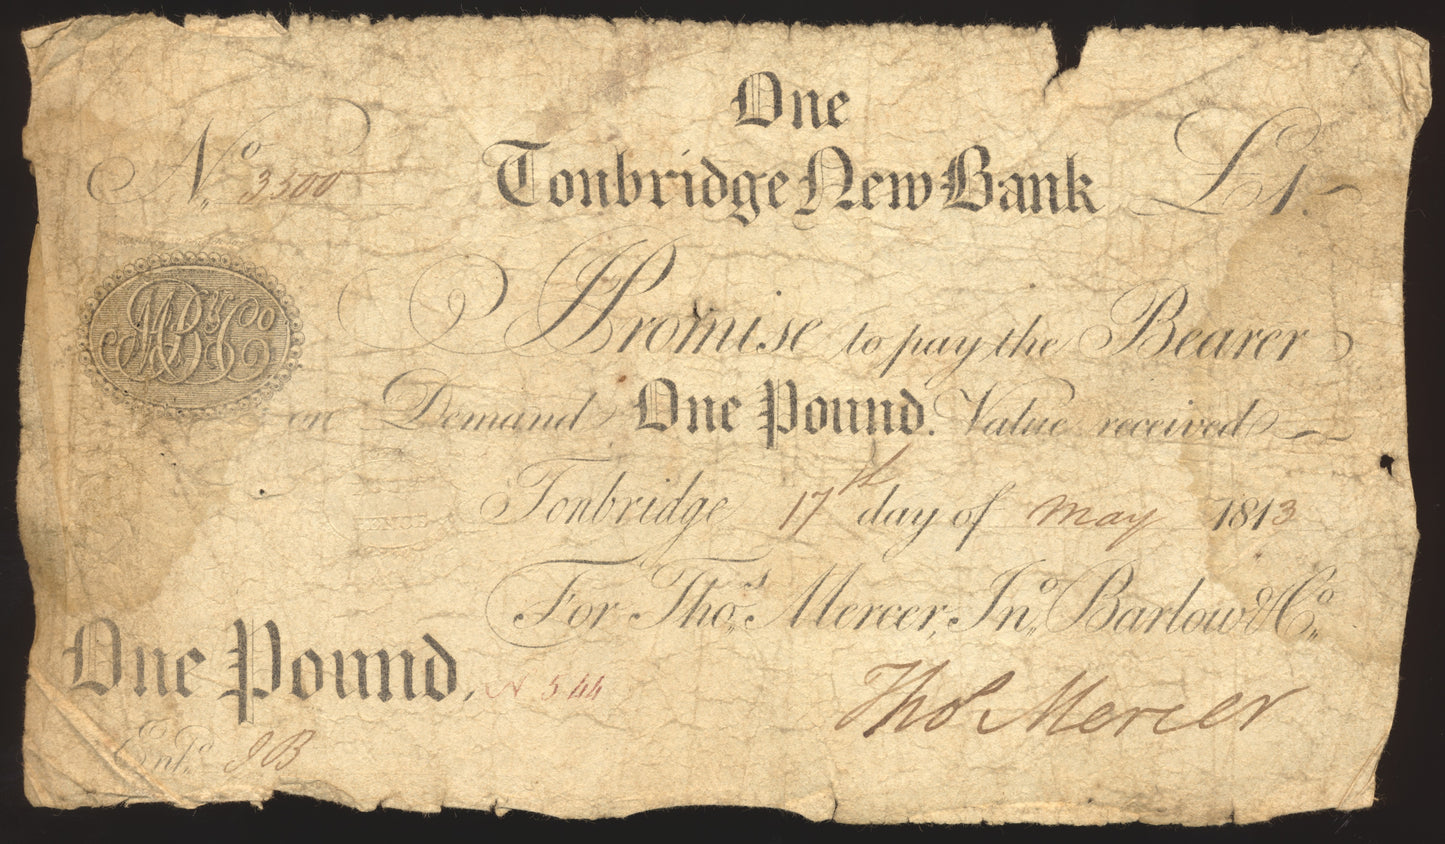 One
Nº 3500 Tonbridge New Bank £1.
I Promise to pay the Bearer
on Demand One Pound. Value received
Tonbridge 17th day of May 1813
For Thos. Mercer, Jno. Barlow & Co.
One Pound. N 544
Thos Mercer
Entd. JB